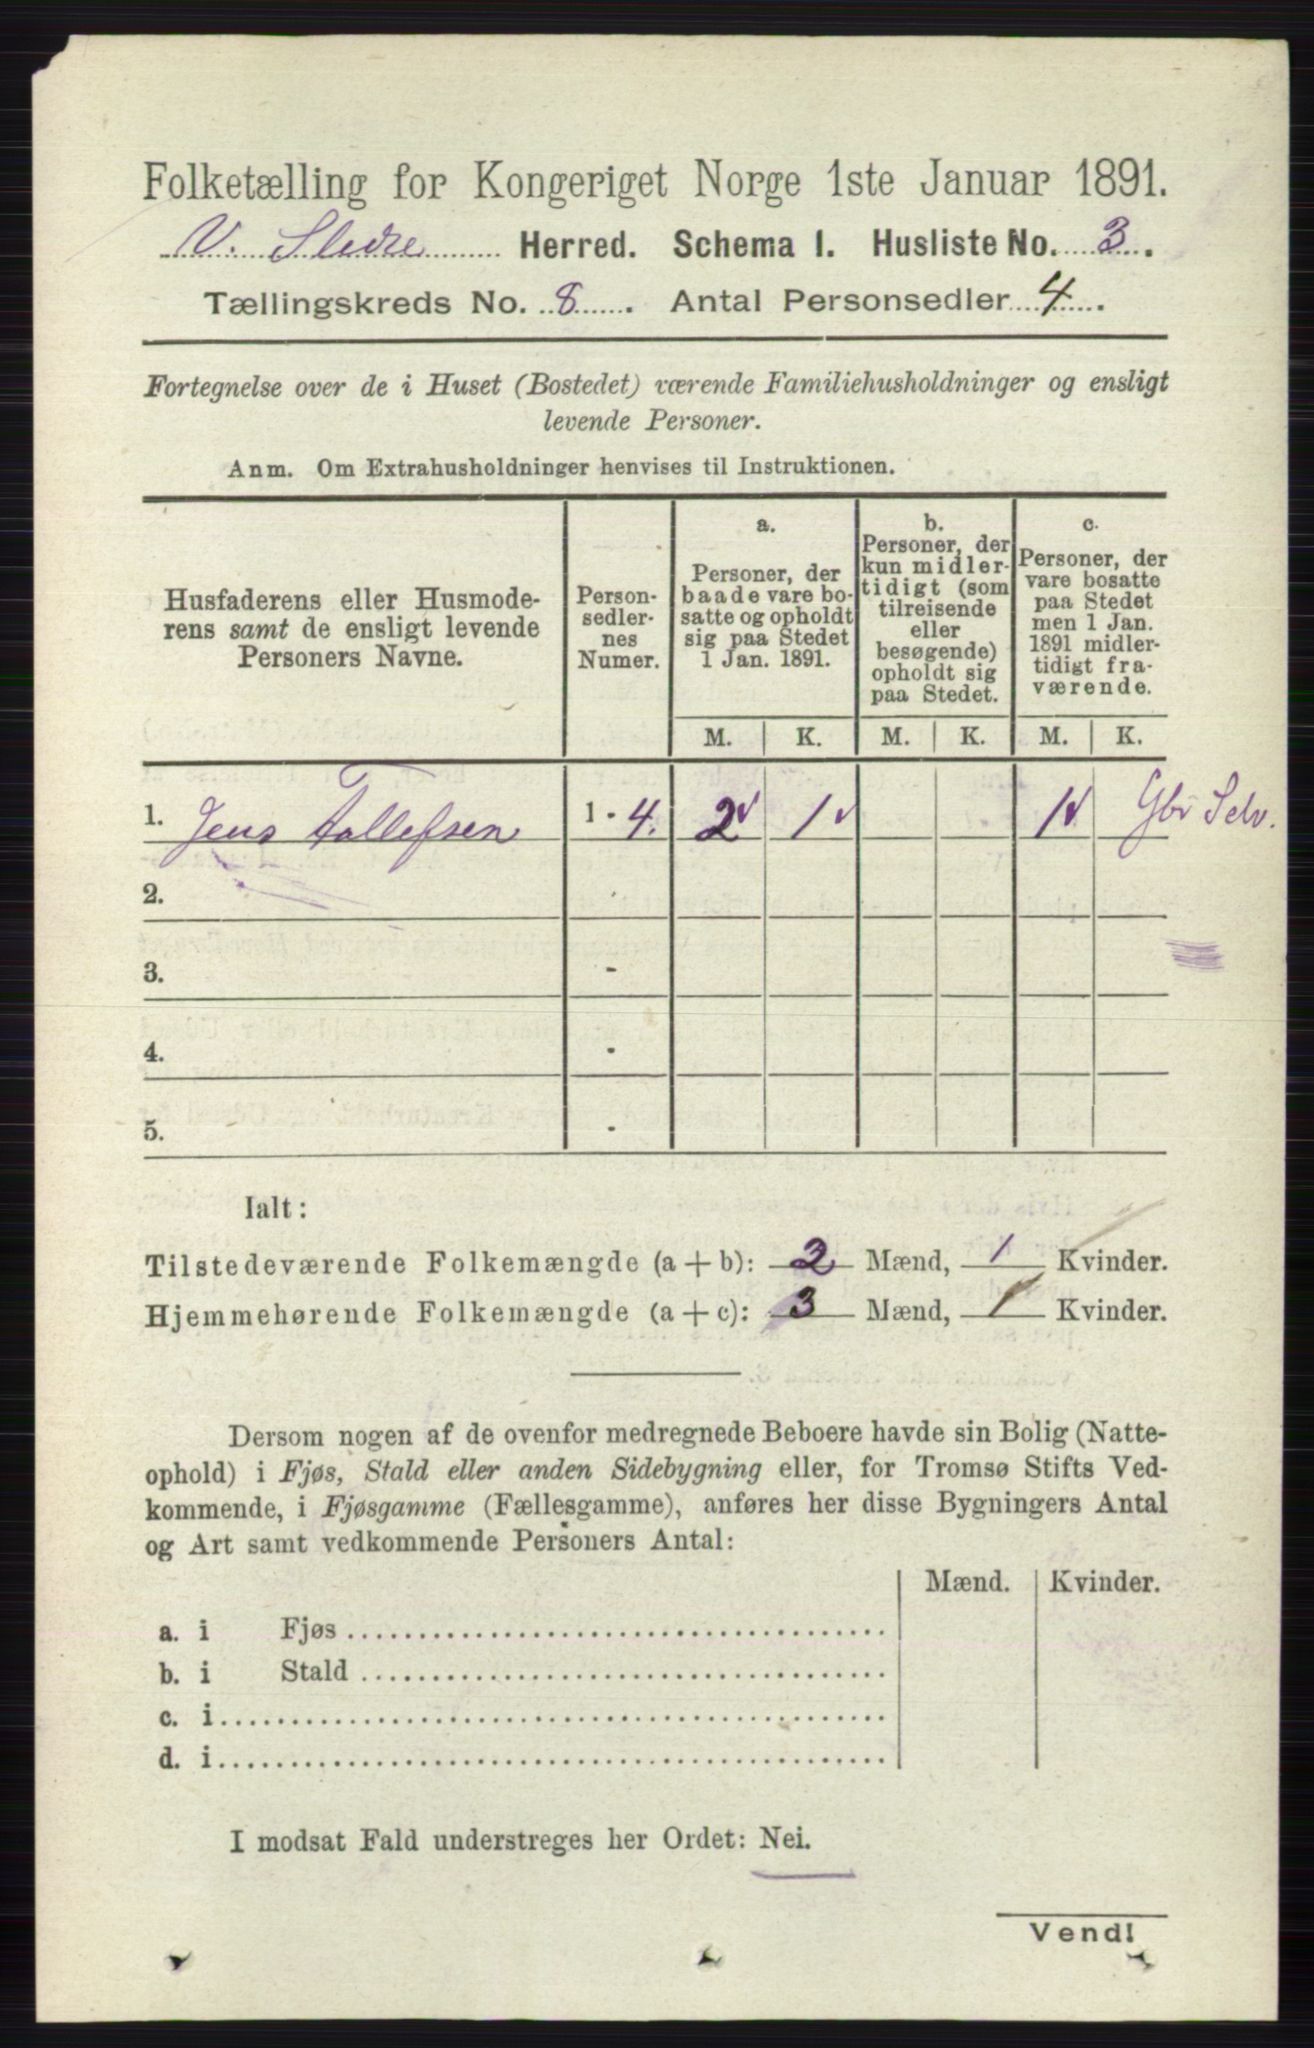 Folketælling for Kongeriget Norge 1ste Januar 1891.
V. Slidre Herred. Schema I. Husliste No. 3.
Tællingskreds No. 8. Antal Personsedler 4.
Fortegnelse over de i Huset (Bostedet) værende Familiehusholdninger og ensligt
levende Personer.
Anm. Om Extrahusholdninger henvises til Instruktionen.
Husfaderens eller Husmode-
rens samt de ensligt levende
Personers Navne.
Person-
sedler-
nes
Numer.
a.
Personer, der
baade vare bo-
satte og opholdt
sig paa Stedet
1 Jan. 1891.
b.
Personer, der
kun midler-
tidigt (som
tilreisende
eller
besøgende)
opholdt sig
paa Stedet.
c.
Personer, der
vare bosatte
paa Stedet
men 1 Jan.
1891 midler-
tidigt fra-
værende.
M. K. M. K. M. K.
1. Jens Tollefsen 1 - 4. 2 1 1 Gbr Selv.
2.
3. -
4. -
5. -
Ialt:
Tilstedeværende Folkemængde (a + b): 2 Mænd, 1 Kvinder.
Hjemmehørende Folkemængde (a + c): 3 Mænd, 1 Kvinder.
Dersom nogen af de ovenfor medregnede Beboere havde sin Bolig (Natte-
ophold) i Fjøs, Stald eller anden Sidebygning eller, for Tromsø Stifts Ved-
kommende, i Fjøsgamme (Fællesgamme), anføres her disse Bygningers Antal
og Art samt vedkommende Personers Antal:
Mænd. Kvinder.
a. i Fjøs
b. i Stald
c. i
d. i
I modsat Fald understreges her Ordet: Nei.
Vend!